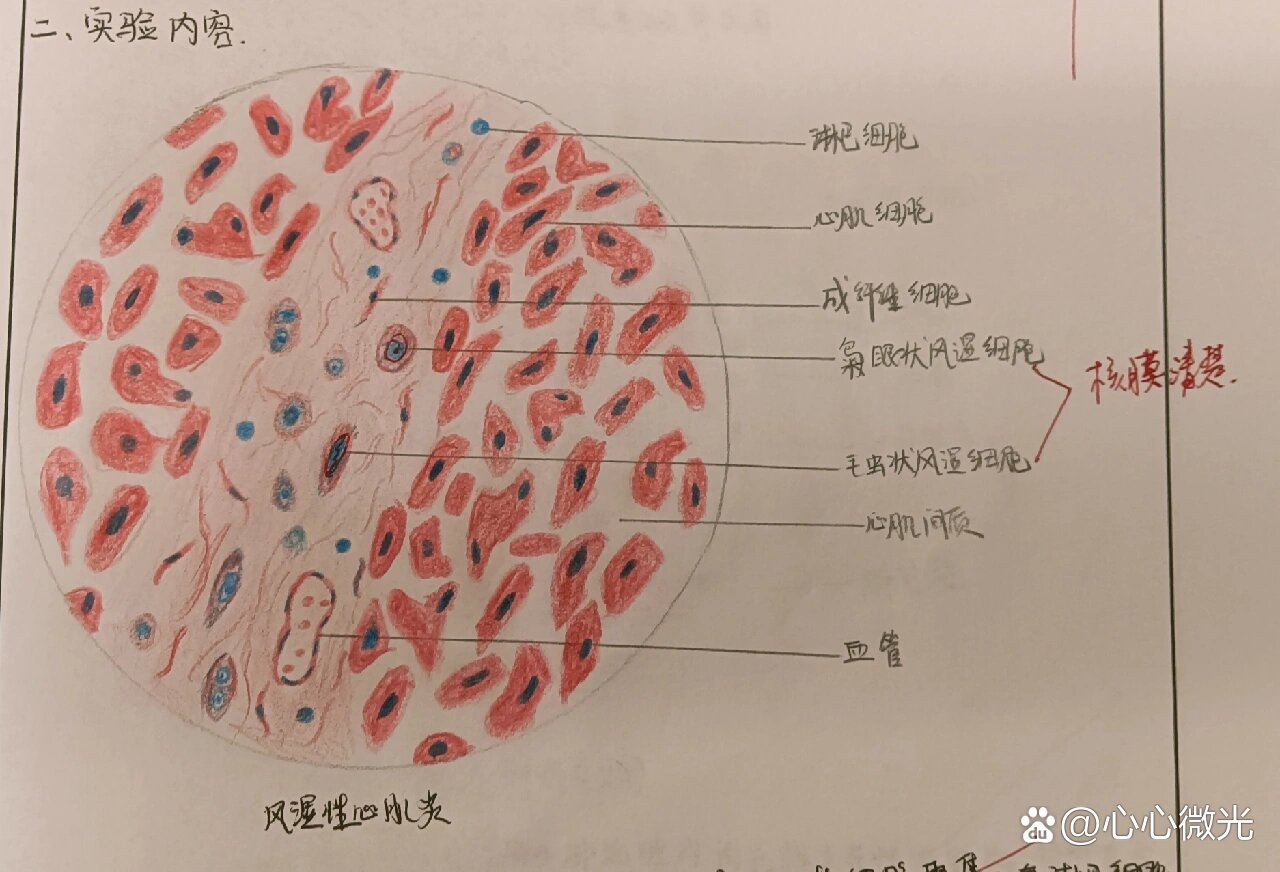 二、实验内容.
淋巴细胞
心肌细胞
成纤维细胞
枭眼状风湿细胞
核膜清楚.
毛虫状风湿细胞
心肌间质
血管
风湿性心肌炎
du @心心微光